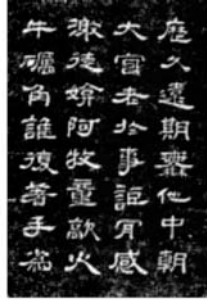 歷久遠期無佗中朝
大官老於事詎肎感
激徒媕阿牧童敲火
牛礪角誰復著手為